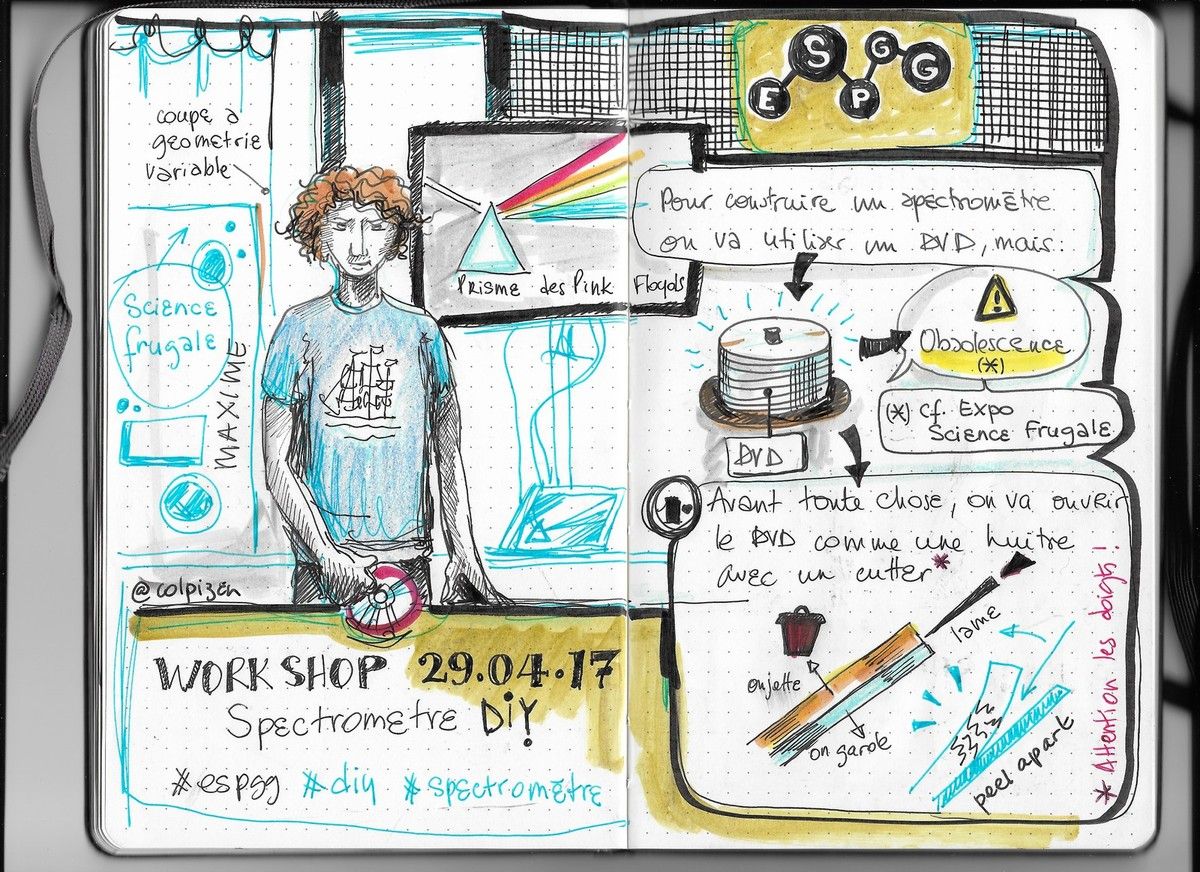 coupe à
geometrie
variable
Science
frugale
MAXIME
Prisme des Pink Floyds
@colpizen
WORKSHOP 29.04.17
Spectrometre DiY
#espgg #diy #spectromètre
ESPGG
Pour construire un spectromètre
on va utiliser un DVD, mais:
Obsolescence
(*)
(*) Cf. Expo
Science Frugale
DVD
Avant toute chose, on va ouvrir
le DVD comme une huitre
avec un cutter*
lame
on jette
on garde
peel apart
* Attention les doigts!